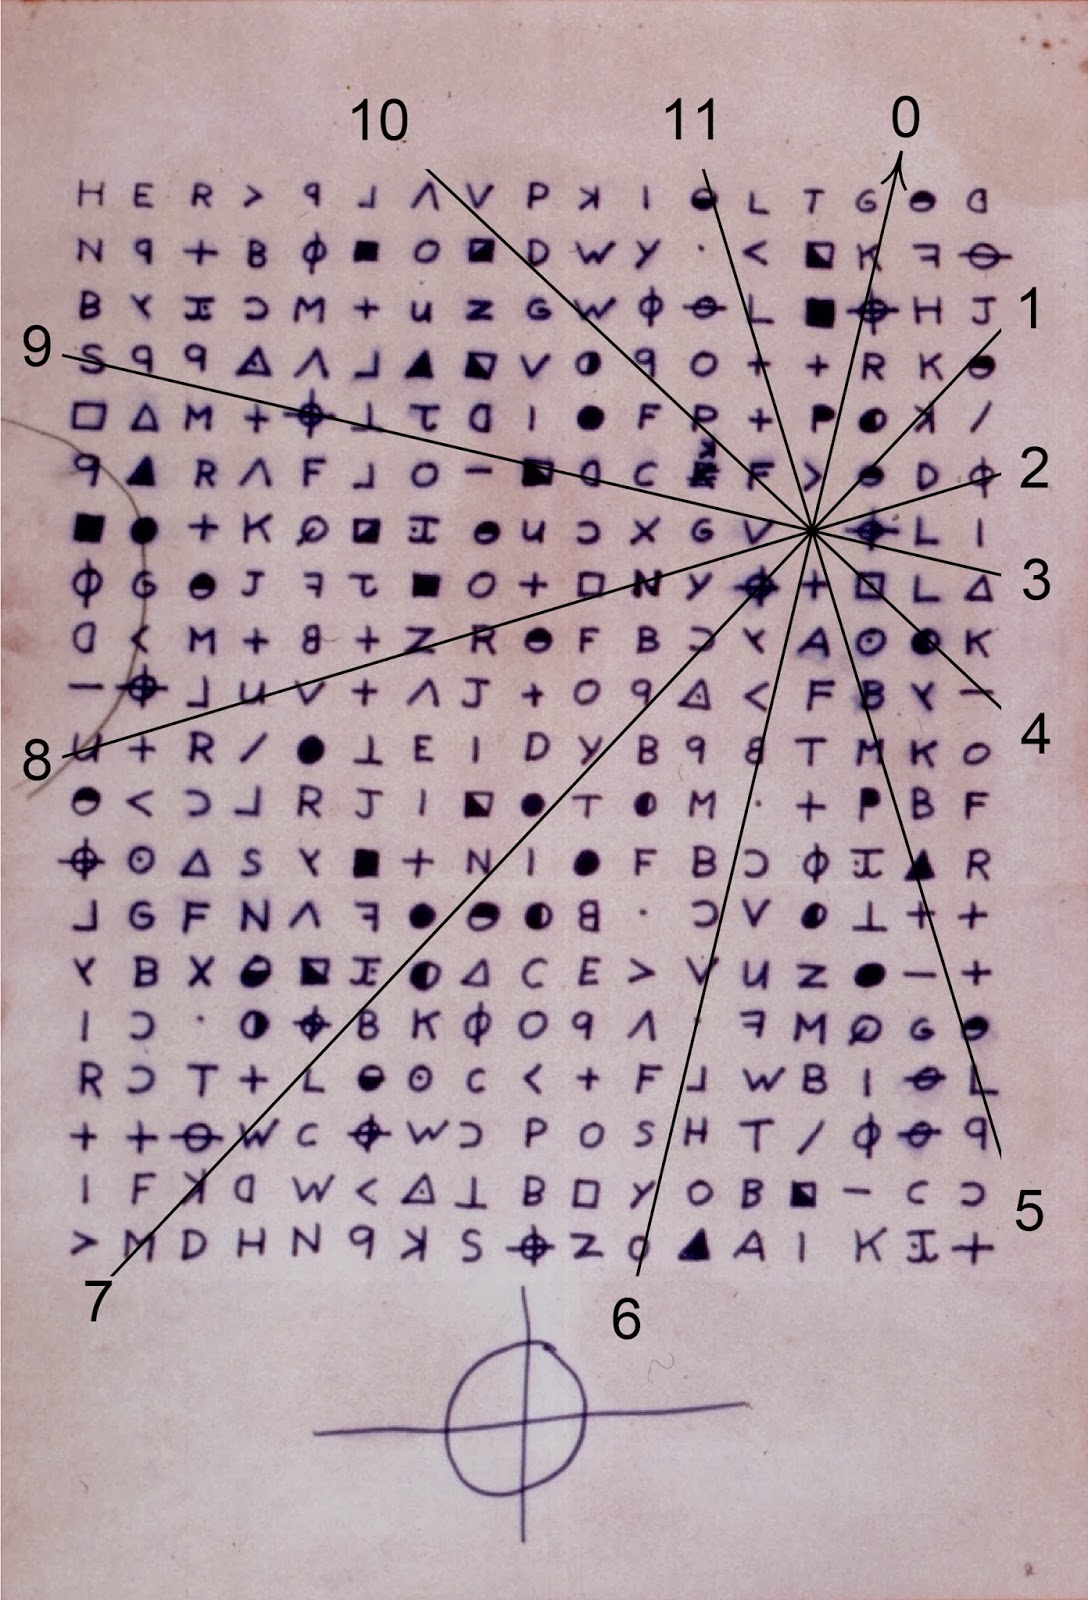 10 11 0
H E R > ꟼ ⅃ Λ V P ꓘ I ◒ L T G ◒ ᗡ
N ꟼ + B ϕ ■ O ◪ D W Y · < ◣ K ꟻ ⊖
B ⅄ Ɪ Ɔ M + u Z G W ϕ ⊖ L ■ ⌖ H J 1
9 S ꟼ ꟼ ◬ Λ ⅃ ◢ ◣ V ◑ ꟼ O + + R K ◒
□ △ M + ⌖ ⊥ τ ᗡ I ● F P + P ◐ ꓘ /
ꟼ ◢ R Λ F ⅃ O – ◣ ᗡ C ꓘ F > ◒ D ϕ 2
■ ● + K ∅ ◪ Ɪ ◒ u Ɔ X G V · ⌖ L I
ϕ G ◒ J ꟻ τ ■ O + □ N Y ⌖ + □ L △ 3
ᗡ < M + 8 + Z R ◒ F B Ɔ ⅄ A ⊙ ● K
– ⌖ ⅃ u V + Λ J + O ꟼ ◬ < F B ⅄ –
8 u + R / ● ⊥ E I D Y B ꟼ 8 T M K O 4
◒ < Ɔ ⅃ R J I ◣ ● T ◐ M · + P B F
⌖ ⊙ △ S ⅄ ■ + N I ● F B Ɔ ϕ Ɪ ▲ R
⅃ G F N Λ ꟻ ● ◒ ◑ 8 · Ɔ V ◑ ⊥ + +
⅄ B X ◒ ◣ Ɪ ◐ △ C E > V u Z ● – +
I Ɔ · ◑ ⌖ B K ϕ O ꟼ Λ · ꟻ M ∅ G ◒
R Ɔ T + L ◒ ⊙ C < + F ⅃ W B I ⊖ L
+ + ⊖ W C ⌖ W Ɔ P O S H T / ϕ ⊖ ꟼ
I F ꓘ ᗡ W < ◬ ⊥ B □ Y O B ◣ – C Ɔ 5
> M D H N ꟼ ꓘ S ⌖ Z O ▲ A I K Ɪ +
7 6